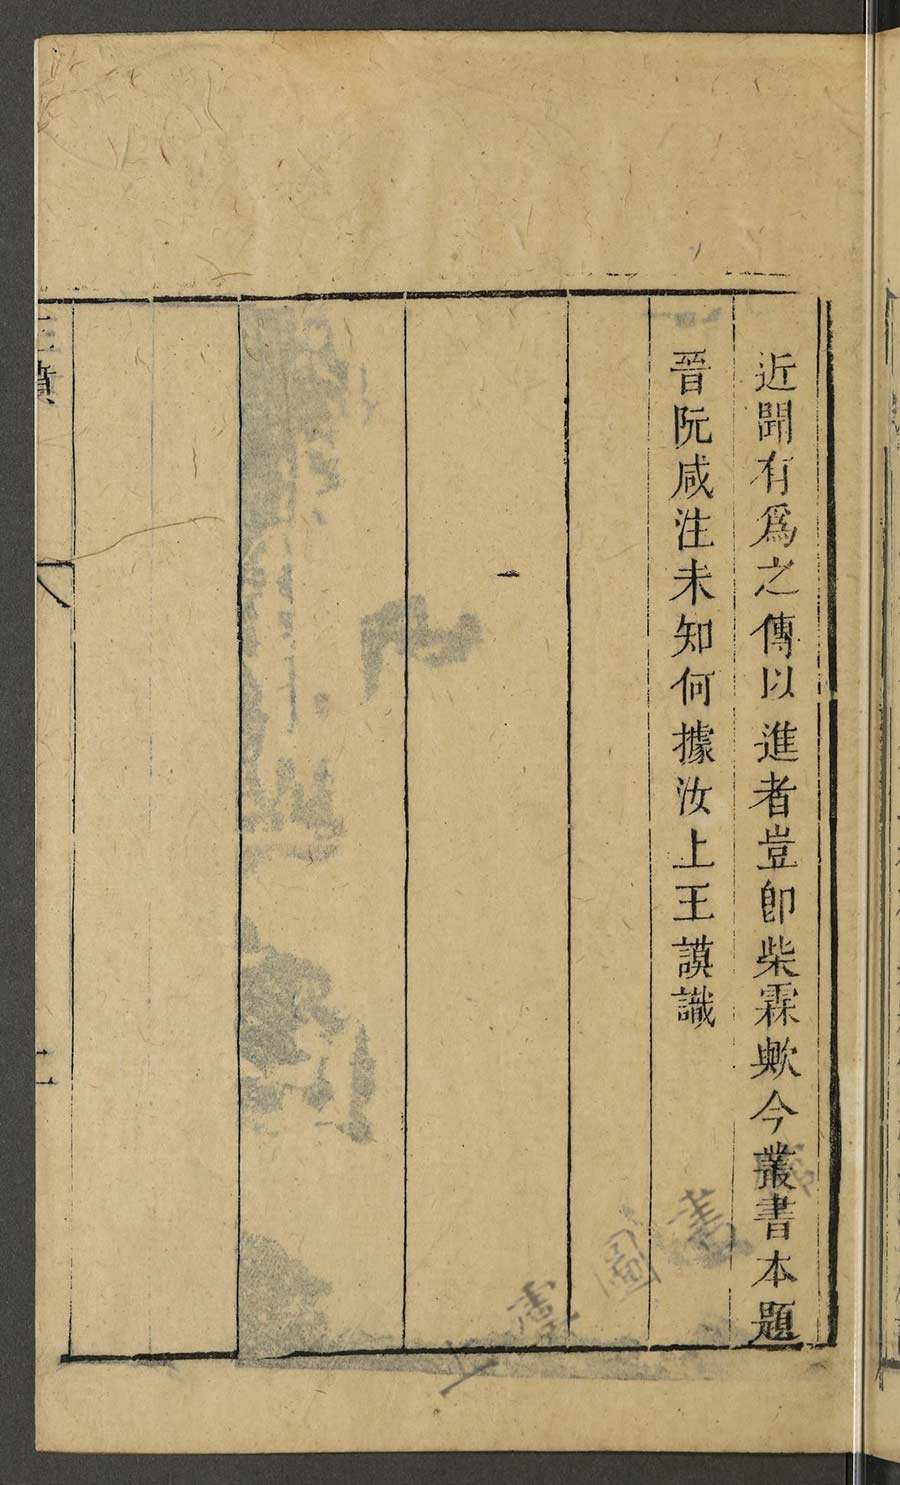 近聞有爲之傳以進者豈卽柴霖歟今叢書本題
晉阮咸注未知何據汝上王謨識
三墳
八
二